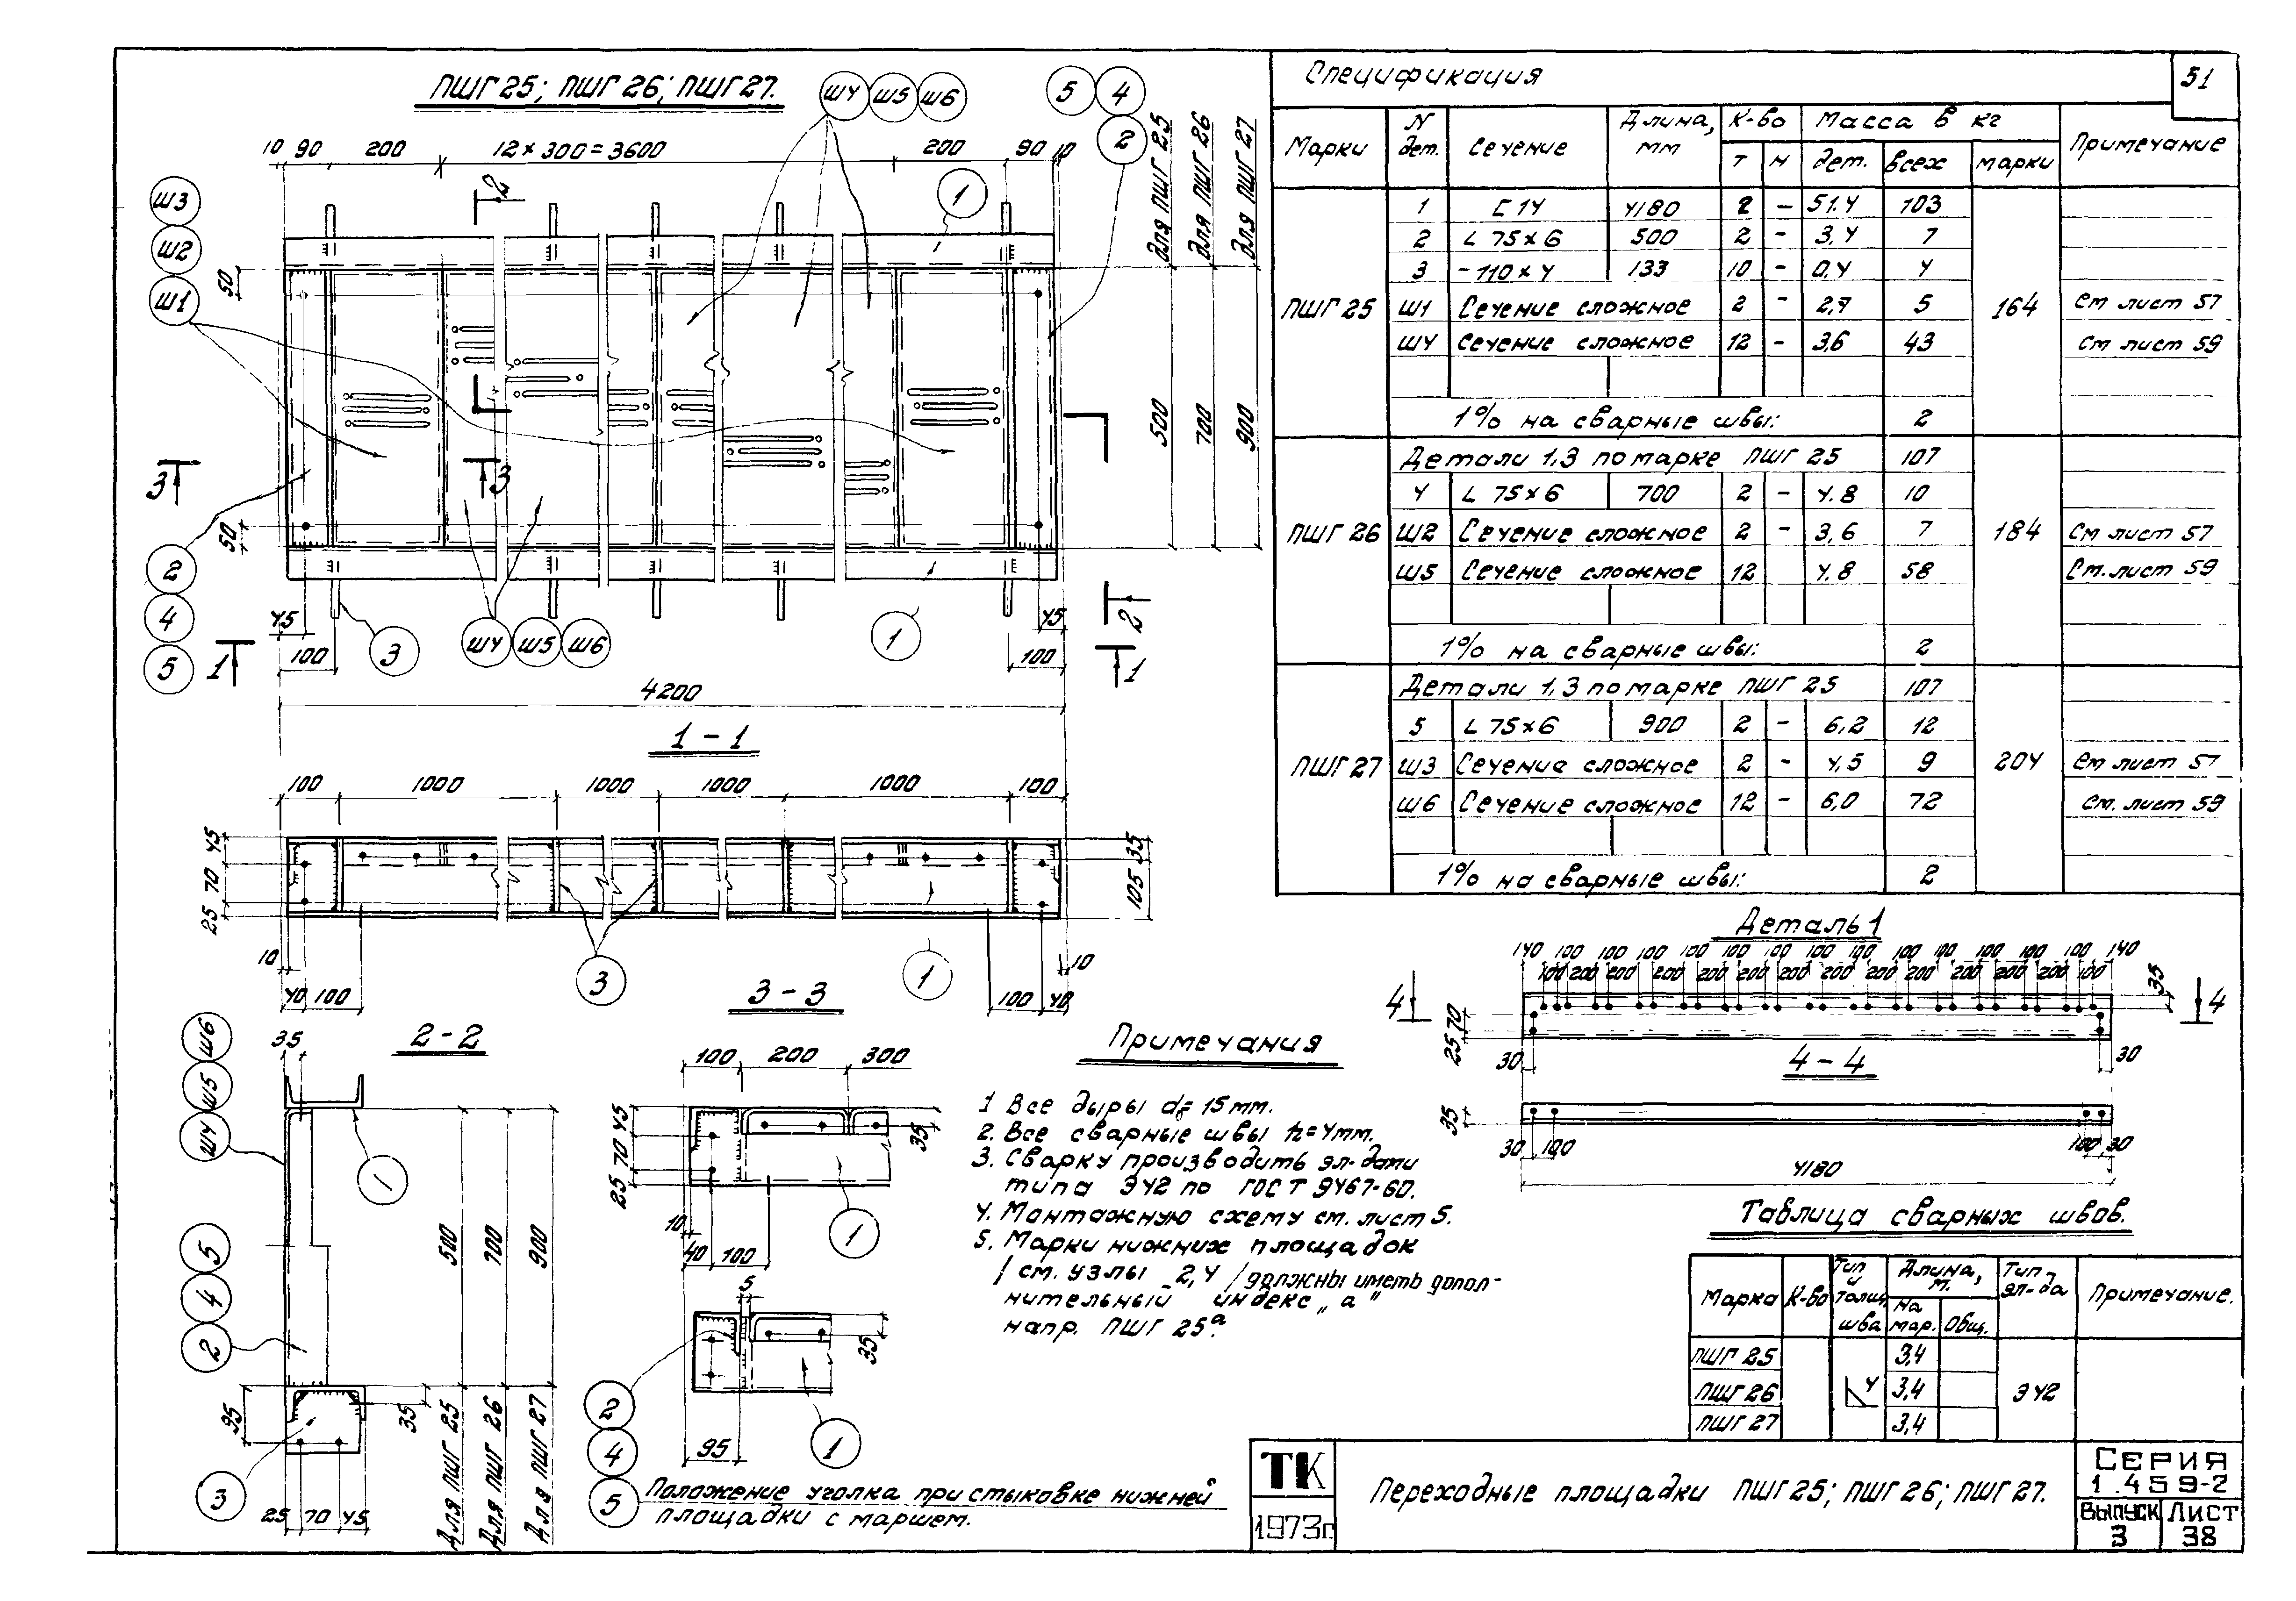 ПШГ 25; ПШГ 26; ПШГ 27.
Ш4 Ш5 Ш6
5 4
2
для ПШГ 25
для ПШГ 26
для ПШГ 27
10 90 200 12 × 300 = 3600 200 90 10
2
1
Ш3
Ш2
Ш1
50
500
700
900
3 3
50
2
4
5
45 45
1 100 3 Ш4 Ш5 Ш6 1 100 2 1
4200
1 - 1
100 1000 1000 1000 1000 100
45 35
70 105
25
10 3 1 10
40 100 100 40
2 - 2
35
Ш6
Ш5
Ш4
1
5
4
2
500
700
900
95
35
3
25 70 45
Для ПШГ 25
Для ПШГ 26
Для ПШГ 27
3 - 3
100 200 300
45
70
25
35
10
40 100
1
5
35
2
4
5
95
1
Положение уголка при стыковке нижней
площадки с маршем.
Примечания
1 Все дыры d₀= 15мм.
2. Все сварные швы h=4мм.
3. Сварку производить эл-дами
типа Э42 по ГОСТ 9467-60.
4. Монтажную схему см. лист 5.
5. Марки нижних площадок
/ см. узлы 2,4 / должны иметь допол-
нительный индекс „а"
напр. ПШГ 25ᵃ.
Спецификация
51
Марки N дет. Сечение Длина, мм К-во Масса в кг Примечание
т н дет. всех марки
1 [ 14 4180 2 - 51.4 103
2 L 75×6 500 2 - 3,4 7
3 - 110×4 133 10 - 0,4 4
ПШГ 25 Ш1 Сечение сложное 2 - 2,7 5 164 см лист 57
Ш4 Сечение сложное 12 - 3,6 43 см лист 59
1% на сварные швы: 2
Детали 1,3 по марке ПШГ 25 107
4 L 75×6 700 2 - 4.8 10
ПШГ 26 Ш2 Сечение сложное 2 - 3,6 7 184 См лист 57
Ш5 Сечение сложное 12 4,8 58 См. лист 59
1% на сварные швы: 2
Детали 1,3 по марке ПШГ 25 107
5 L 75×6 900 2 - 6,2 12
ПШГ 27 Ш3 Сечение сложное 2 - 4,5 9 204 см лист 57
Ш6 Сечение сложное 12 - 6,0 72 см. лист 59
1% на сварные швы: 2
Деталь 1
140 100 100 100 100 100 100 100 100 100 100 100 100 100 140
100 200 200 200 200 200 200 200 200 200 200 200 200 100
4 35 4
70
25
30 30
4 - 4
35
30 100 100 30
4180
Таблица сварных швов.
Марка К-во Тип и толщ. шва Длина, м. Тип эл-да Примечание.
На мар. Общ.
ПШГ 25 3,4
ПШГ 26 4 3,4 Э42
ПШГ 27 3,4
ТК
1973г
Переходные площадки ПШГ 25; ПШГ 26; ПШГ 27.
СЕРИЯ
1.459-2
Выпуск Лист
3 38